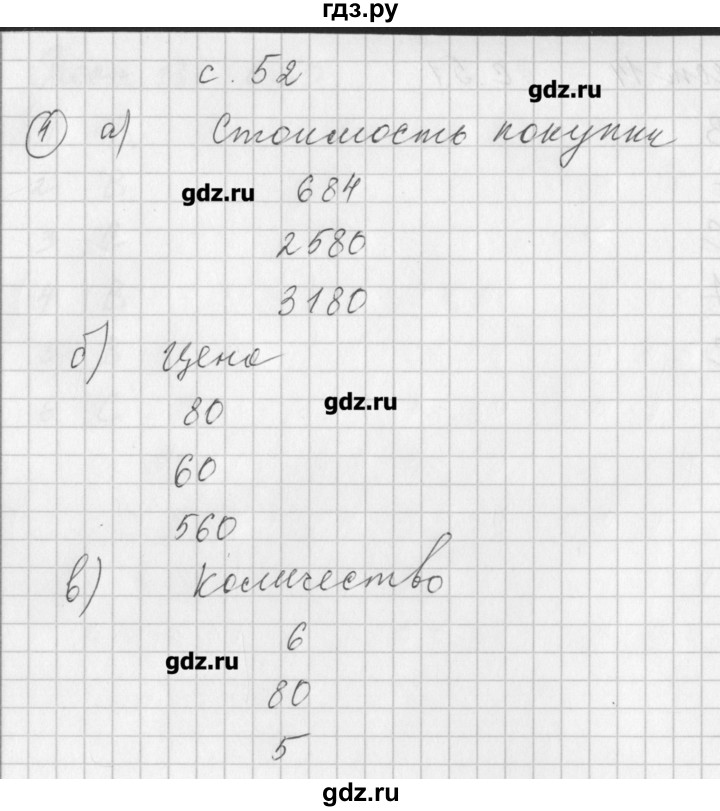 гдз.ру
с. 52
gdz.ru
1 а) Стоимость покупки
gdz.ru 684
2580
3180
б) Цена
80
gdz.ru
60
560
в) Количество
6
gdz.ru
80
5
gdz.ru